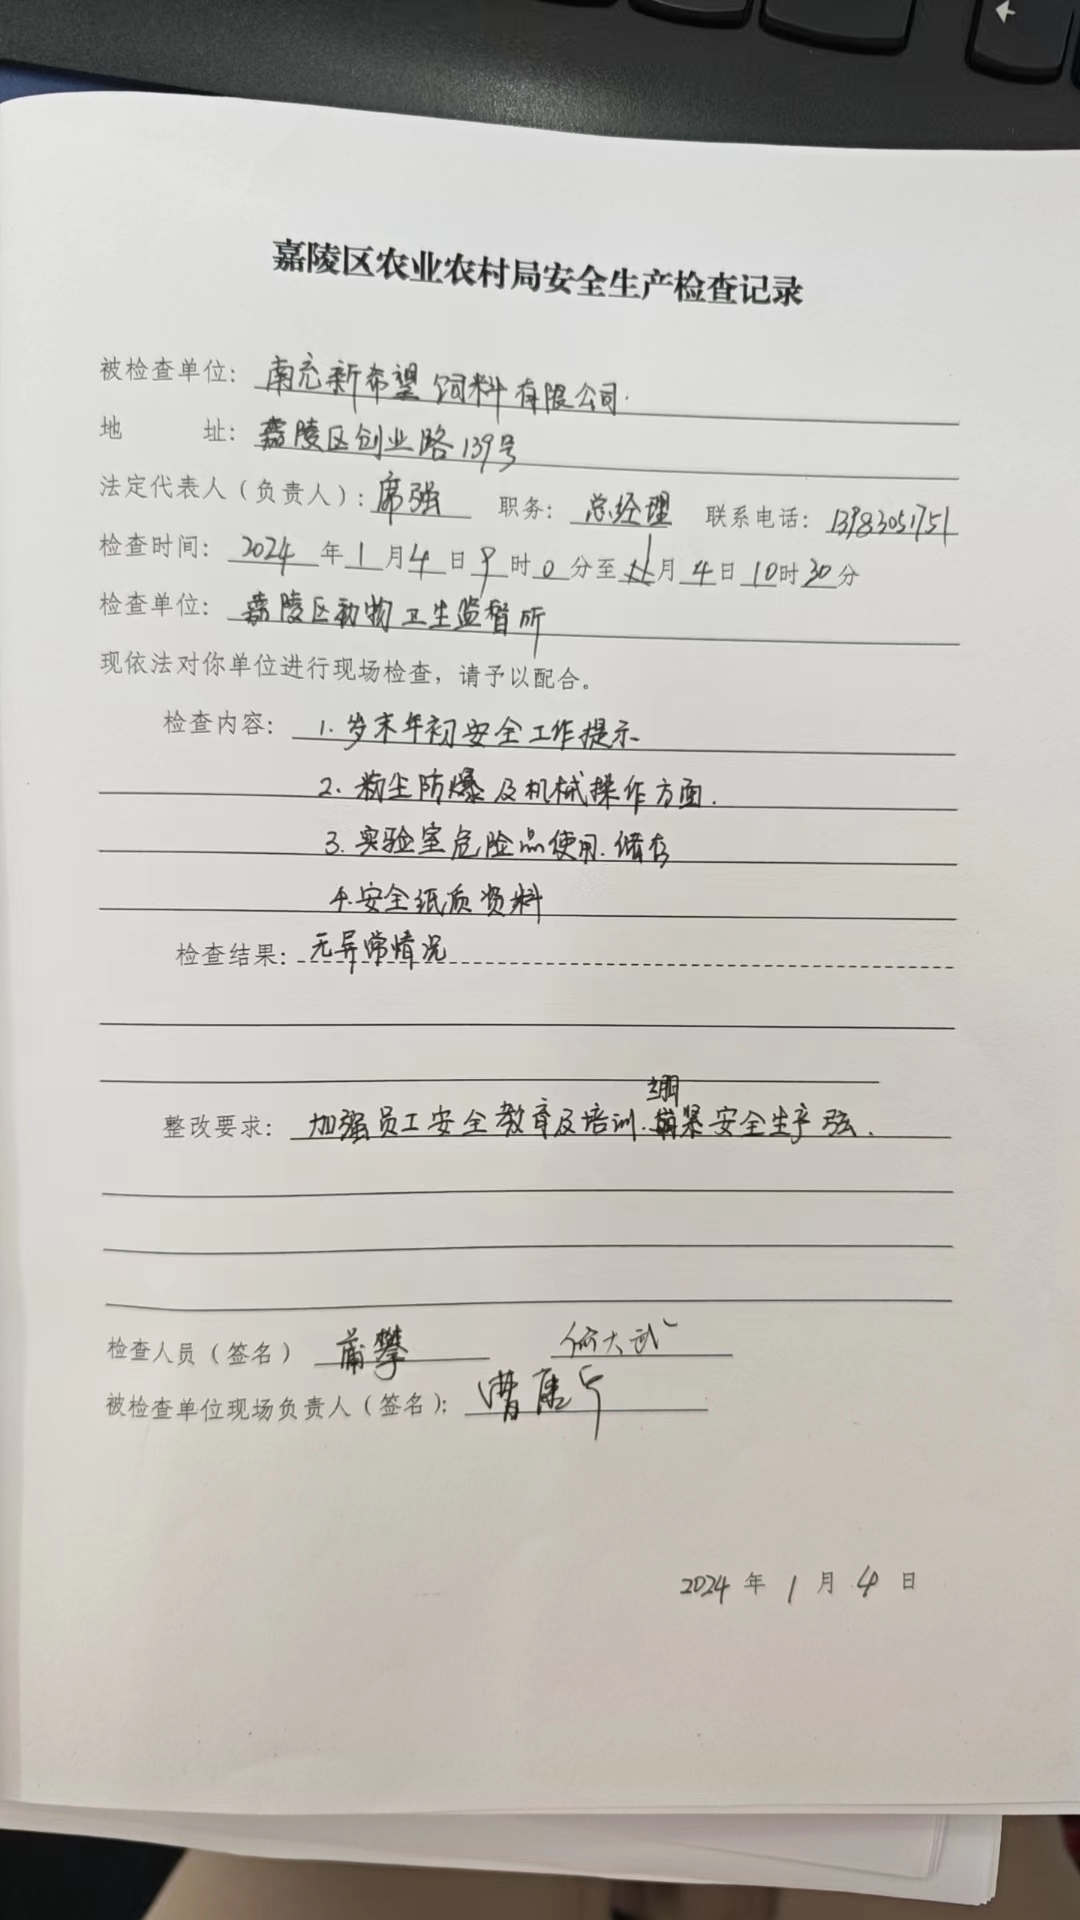 嘉陵区农业农村局安全生产检查记录
被检查单位：南充新希望饲料有限公司.
地 址：嘉陵区创业路139号
法定代表人（负责人）：席强 职务：总经理 联系电话：13983051751
检查时间：2024年1月4日9时0分至1月4日10时30分
检查单位：嘉陵区动物卫生监督所
现依法对你单位进行现场检查，请予以配合。
检查内容：1.岁末年初安全工作提示
2.粉尘防爆及机械操作方面.
3.实验室危险品使用.储存
4.安全纸质资料
检查结果：无异常情况
绷
整改要求：加强员工安全教育及培训.紧安全生产弦.
检查人员（签名） 蒲攀 何大武
被检查单位现场负责人（签名）：曹
2024年1月4日